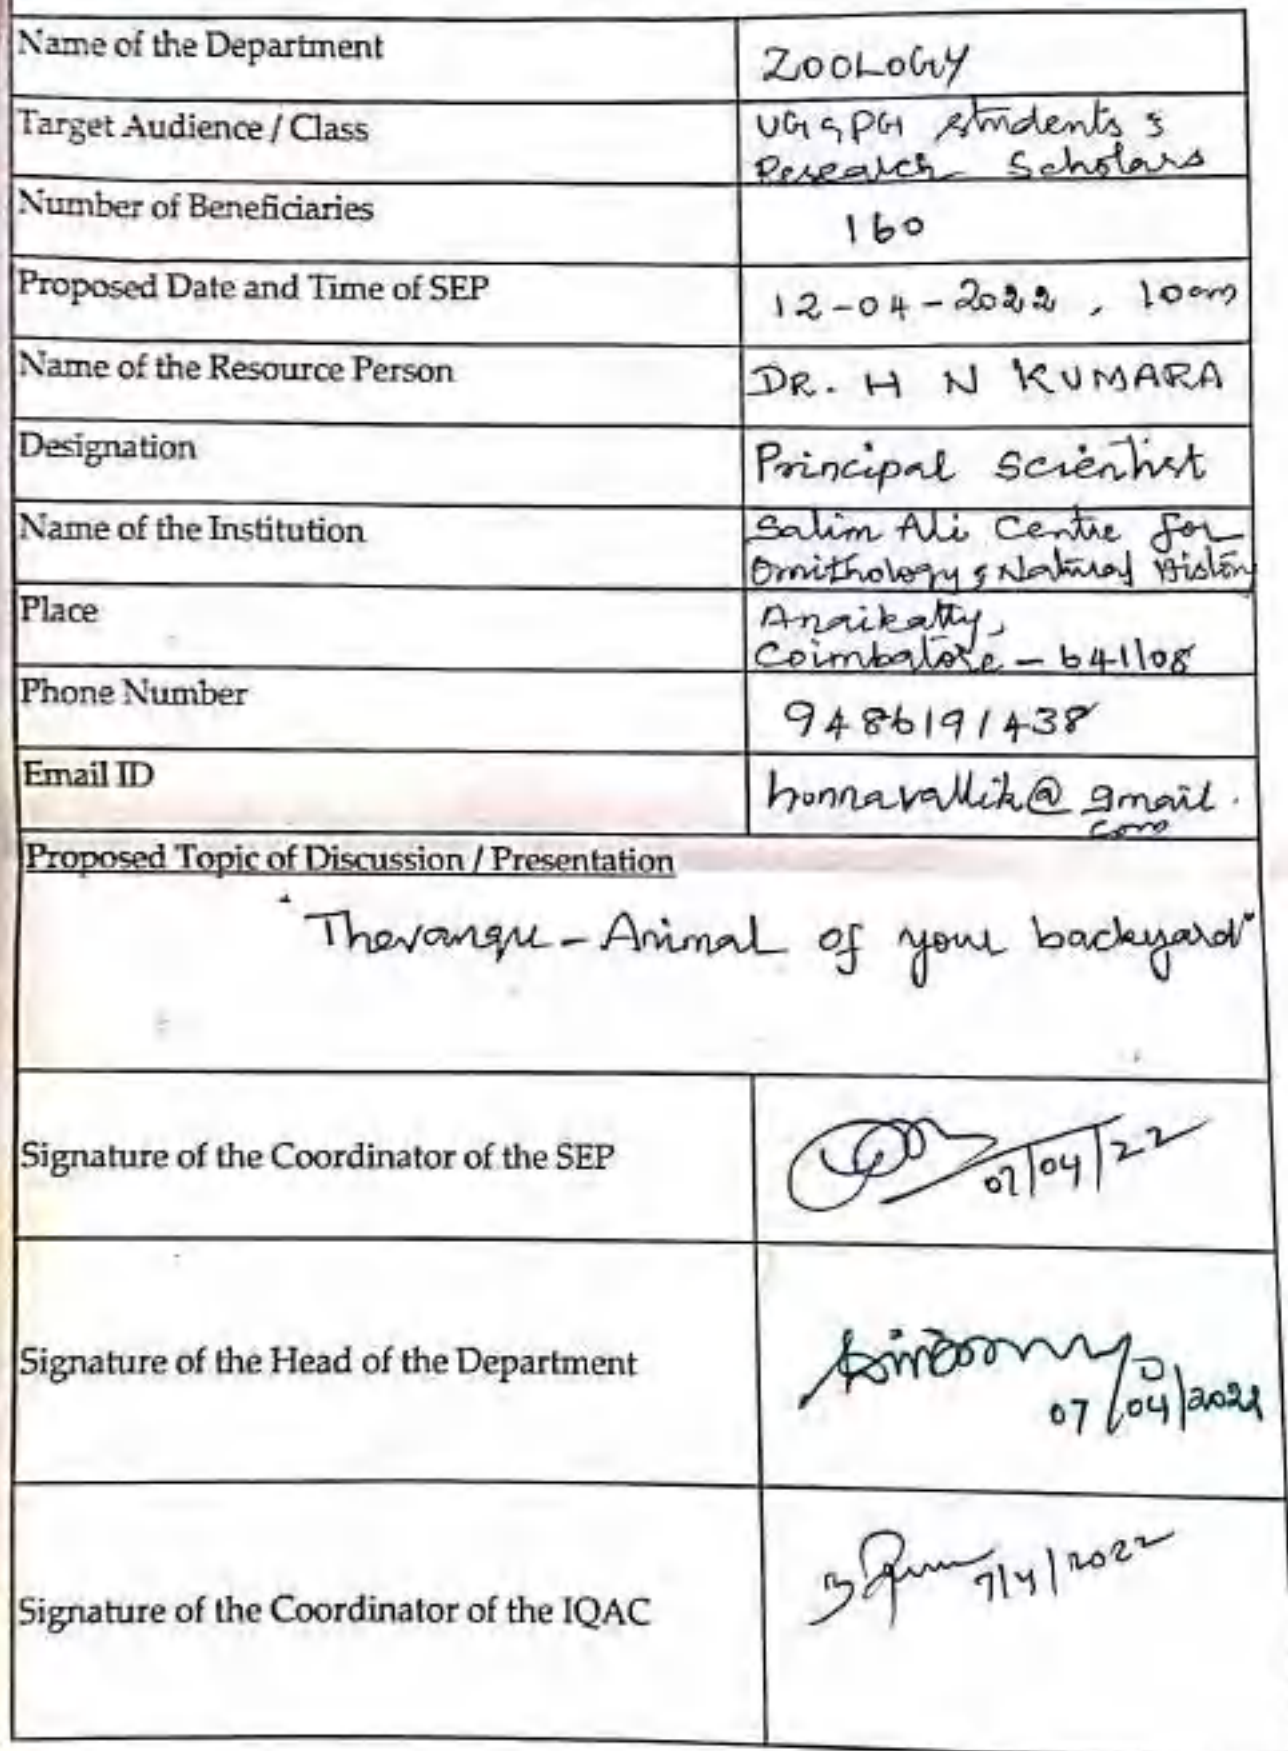 Name of the Department
ZOOLOGY
Target Audience / Class
UG & PG students &
Research Scholars
Number of Beneficiaries
160
Proposed Date and Time of SEP
12-04-2022, 10am
Name of the Resource Person
DR. H N KUMARA
Designation
Principal Scientist
Name of the Institution
Salim Ali Centre for
Ornithology & Natural History
Place
Anaikatty,
Coimbatore - 641108
Phone Number
9486191438
Email ID
honnavallik@gmail.
com
Proposed Topic of Discussion / Presentation
"Thevangu - Animal of your backyard"
Signature of the Coordinator of the SEP
07/04/22
Signature of the Head of the Department
07/04/2022
Signature of the Coordinator of the IQAC
7/4/2022